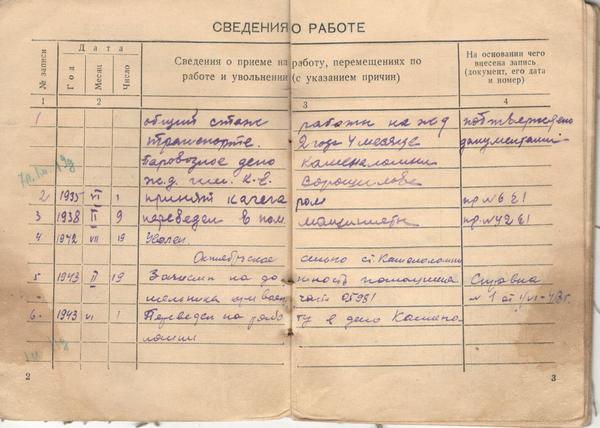 СВЕДЕНИЯ О РАБОТЕ
№ записи
Дата
Год
Месяц
Число
Сведения о приеме на работу, перемещениях по
работе и увольнении (с указанием причин)
На основании чего
внесена запись
(документ, его дата
и номер)
1 2 3 4
1 общий стаж работы на жд подтверждено
транспорте. 2 года 4 месяца документами
Паровозное депо Каменоломни
ж.д. им. К.Е. Ворошилова
2 1935 VI 1 принят кочегаром пр №6 §1
3 1938 II 9 переведен в пом. машиниста пр №42 §1
4 1942 VII 19 Уволен
Октябрьское ст Каменоломни
5 1943 II 19 Зачислен на должность помощника Справка
части №1 от
6. 1943 VI 1 Переведен на работу в депо Камено
ломни
2
3